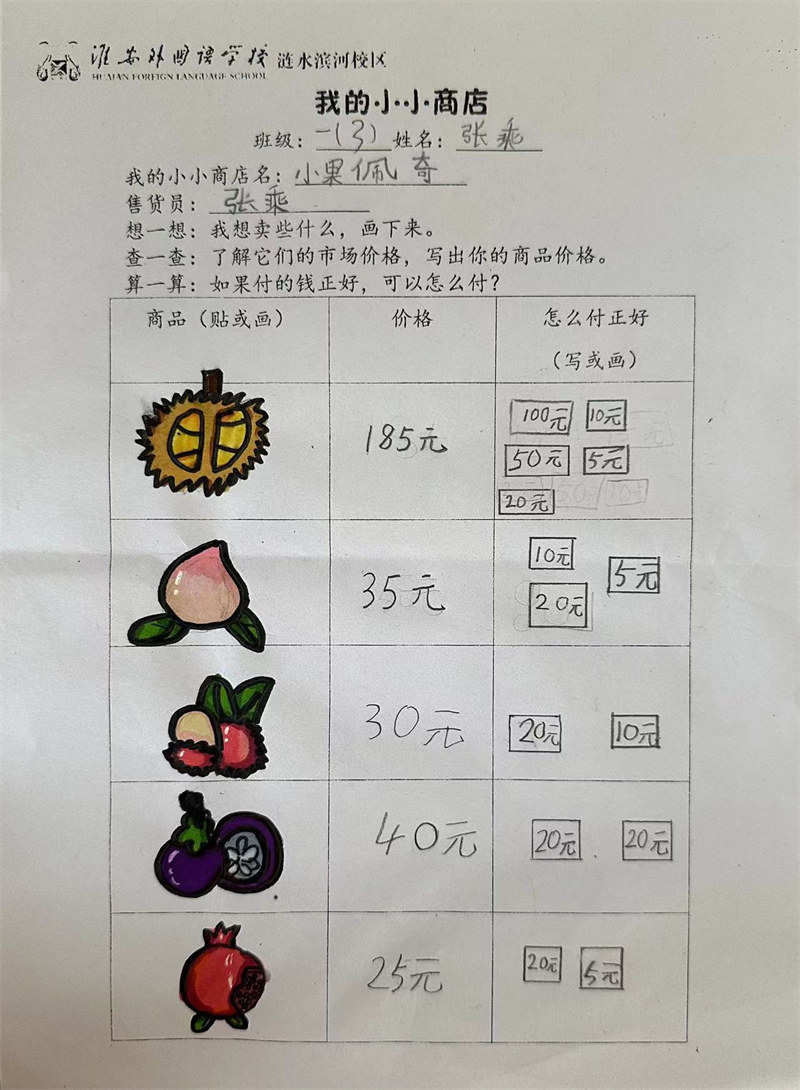 淮安外国语学校 涟水滨河校区
HUAIAN FOREIGN LANGUAGE SCHOOL
我的小小商店
班级：一(3) 姓名：张乘
我的小小商店名：小果佩奇
售货员：张乘
想一想：我想卖些什么，画下来。
查一查：了解它们的市场价格，写出你的商品价格。
算一算：如果付的钱正好，可以怎么付？
商品（贴或画） 价格 怎么付正好
（写或画）
185元 100元 10元
50元 5元
20元
35元 10元 5元
20元
30元 20元 10元
40元 20元 20元
25元 20元 5元